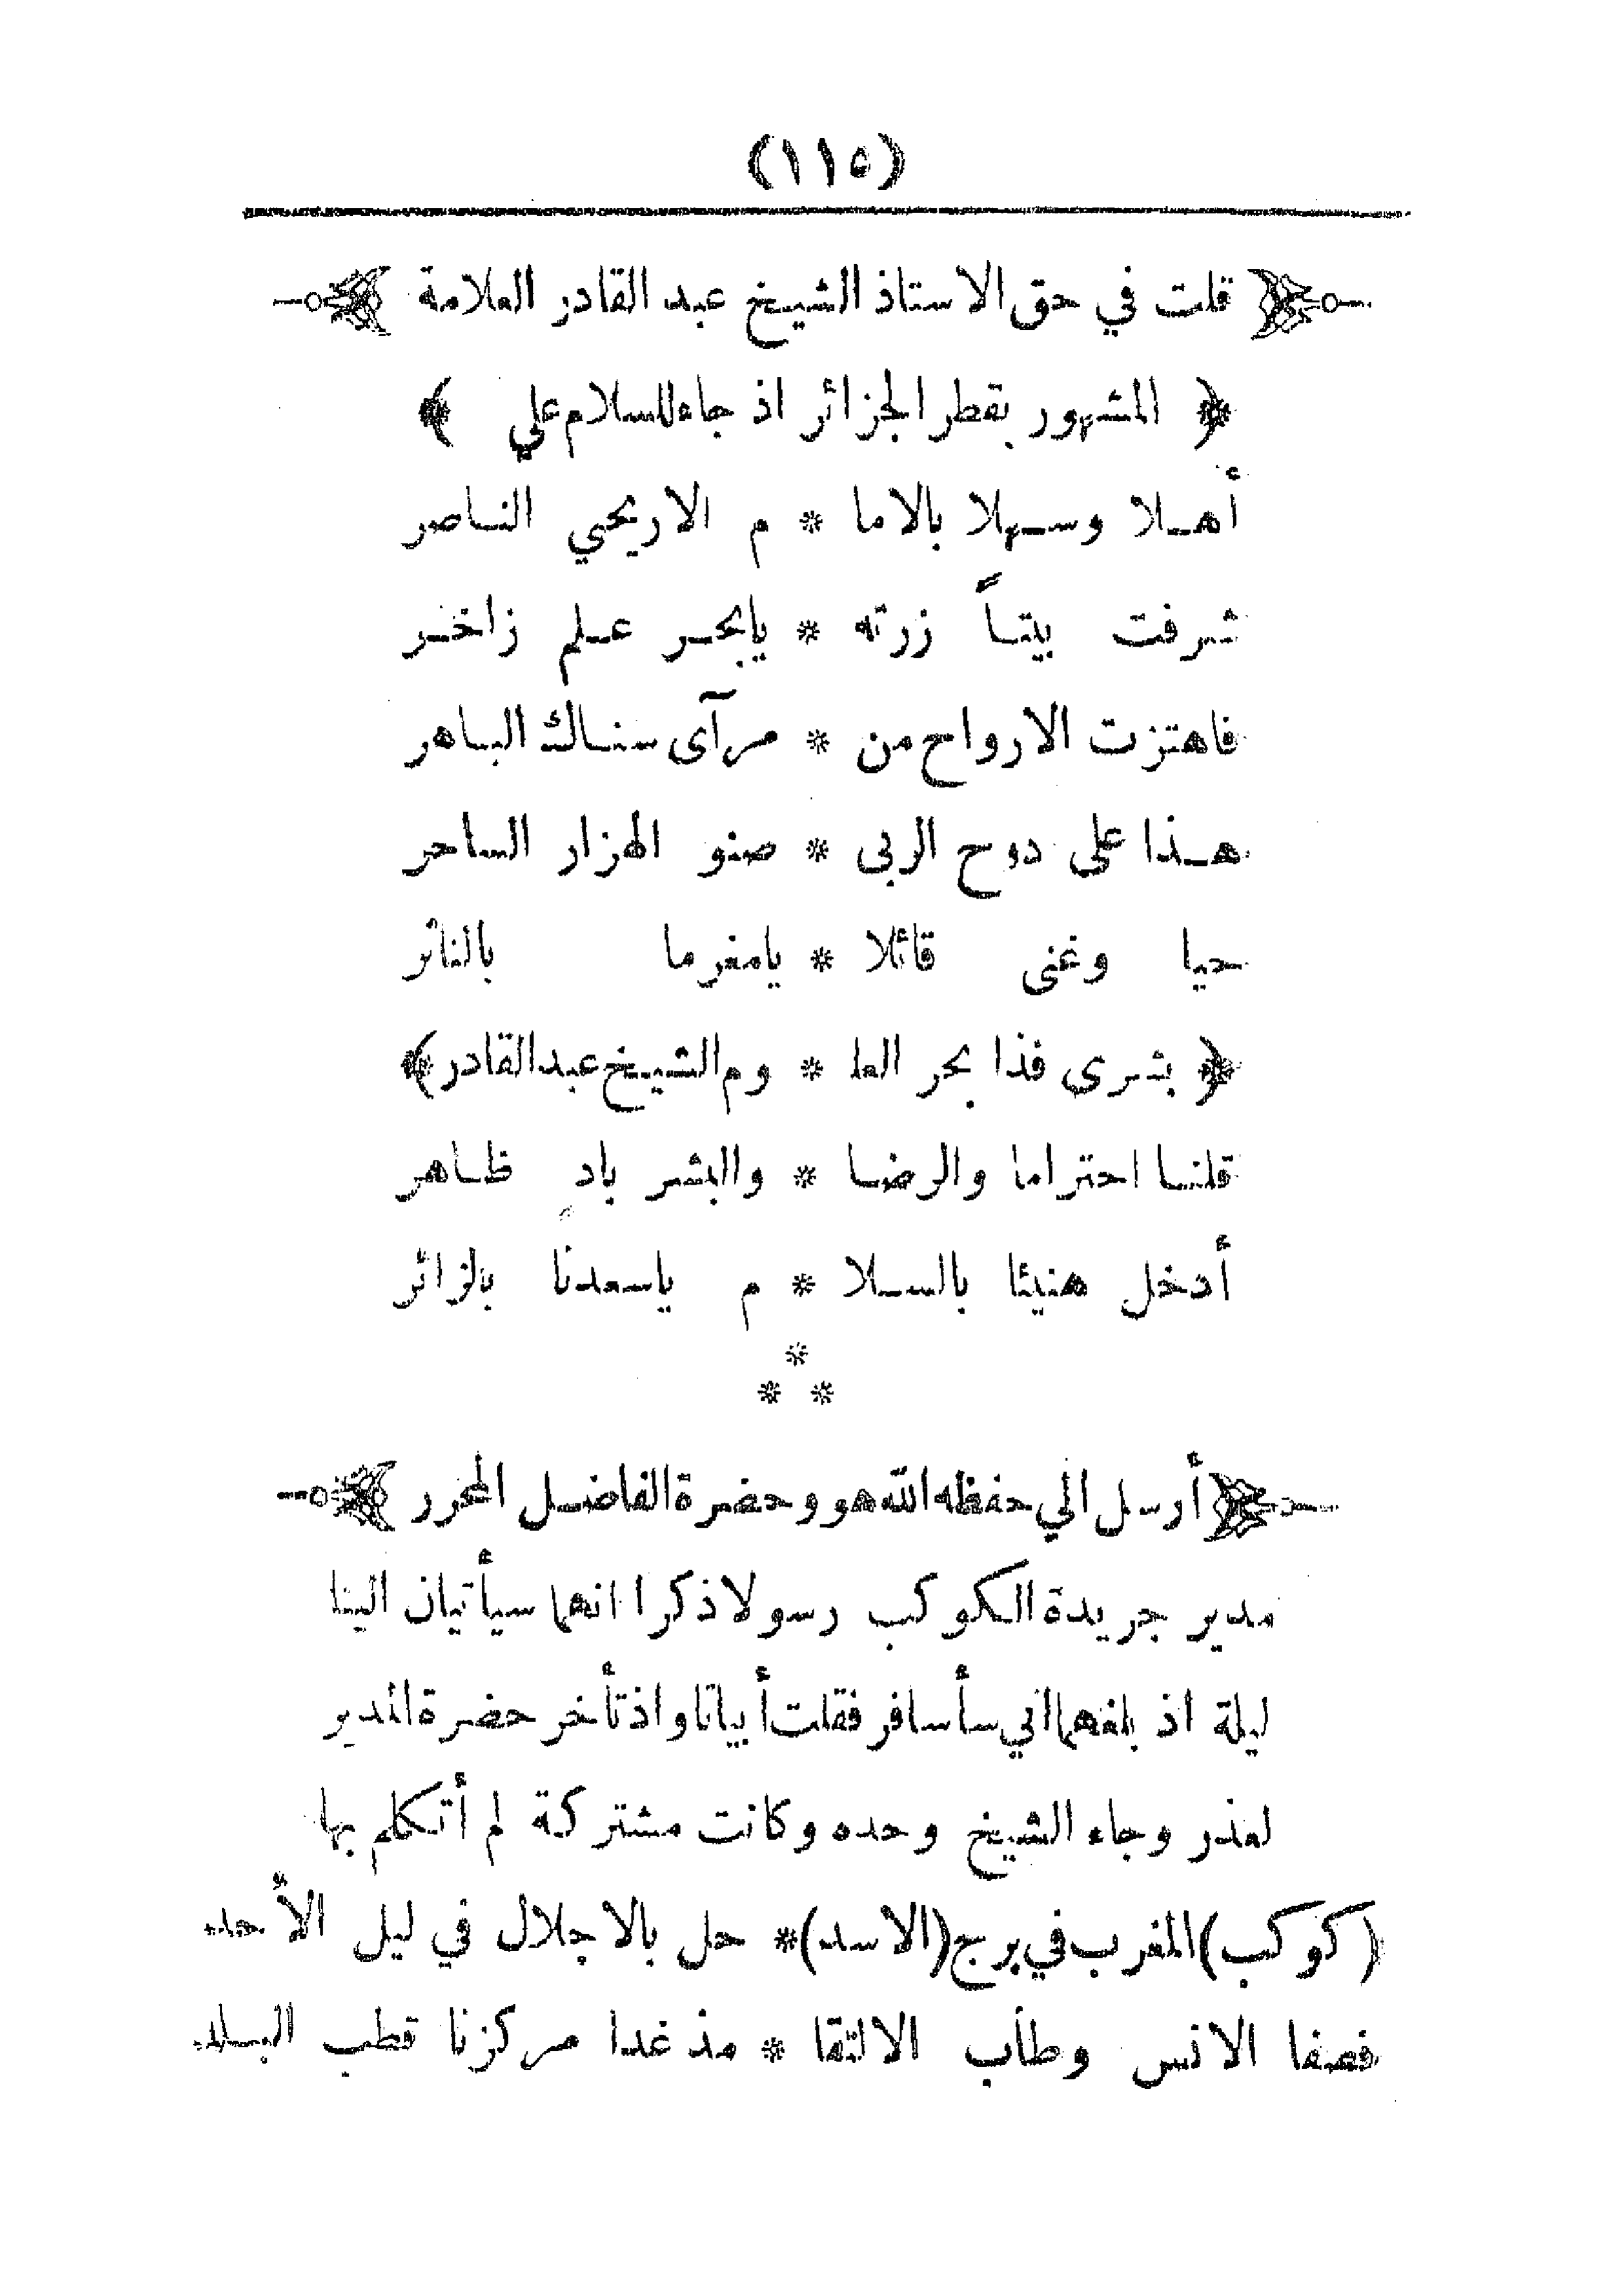 (١١٥)
قلت في حق الاستاذ الشيخ عبد القادر العلامة
﴿ المشهور بقطر الجزائر اذ جاء للسلام علي ﴾
أهلا وسهلا بالاما * م الاريحي الناصر
شرفت بيتاً زرته * يابحر علم زاخر
فاهتزت الارواح من * مرآى سناك الباهر
هذا على دوح الربى * صنو الهزار الساحر
حيا وغنى قائلا * يامغرما بالنائر
﴿ بشرى فذا بحر العلا * وم الشيخ عبد القادر ﴾
قلنا احتراما والرضا * والبشر بادٍ ظاهر
أدخل هنيئا بالسلا * م ياسعدنا بالزائر
*
* *
أرسل الي حفظه الله هو وحضرة الفاضل المحرر
مدير جريدة الكوكب رسولا ذكرا انهما سيأتيان الينا
ليلة اذ بلغهما اني سأسافر فقلت أبياتا واذ تأخر حضرة المدير
لعذر وجاء الشيخ وحده وكانت مشتركة لم أتكلم بها
(كوكب) المغرب في برج (الاسد) * حل بالاجلال في ليل الأحد
فصفا الانس وطاب الالتقا * مذ غدا مركزنا قطب البلد